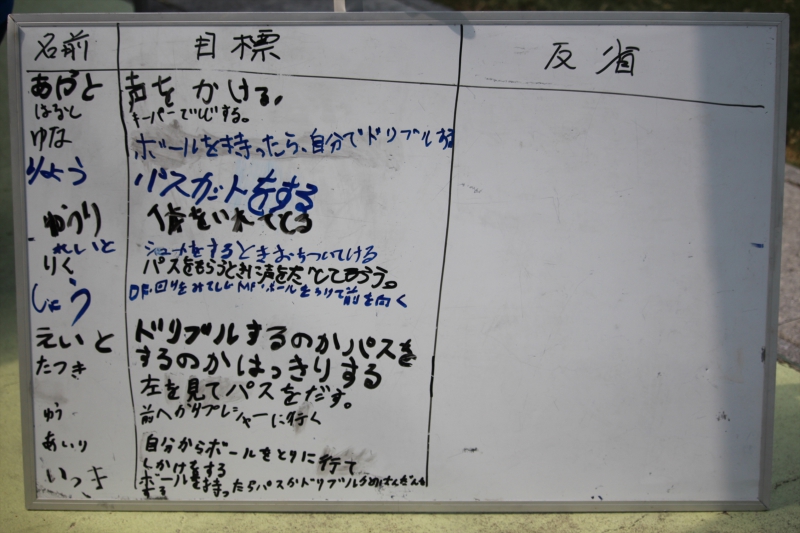 名前 目標 反省
あびと 声をかける。
はると キーパーでしじする。
ゆな ボールを持ったら、自分でドリブルする
りょう パスカットをする
ゆうり 体をいれてとる
れいと シュートをするときおちついてける
りく パスをもらうときに声をだしてもらう。
しょう DF.回りをみてしじ MF.ボールをうけて前を向く
えいと ドリブルするのかパスを
するのかはっきりする
たつき 左を見てパスをだす。
ゆう 前へかりプレシャーに行く
あいり 自分からボールをとりに行て
しかけをする
いつき ボールを持ったらパスかドリブルか
する